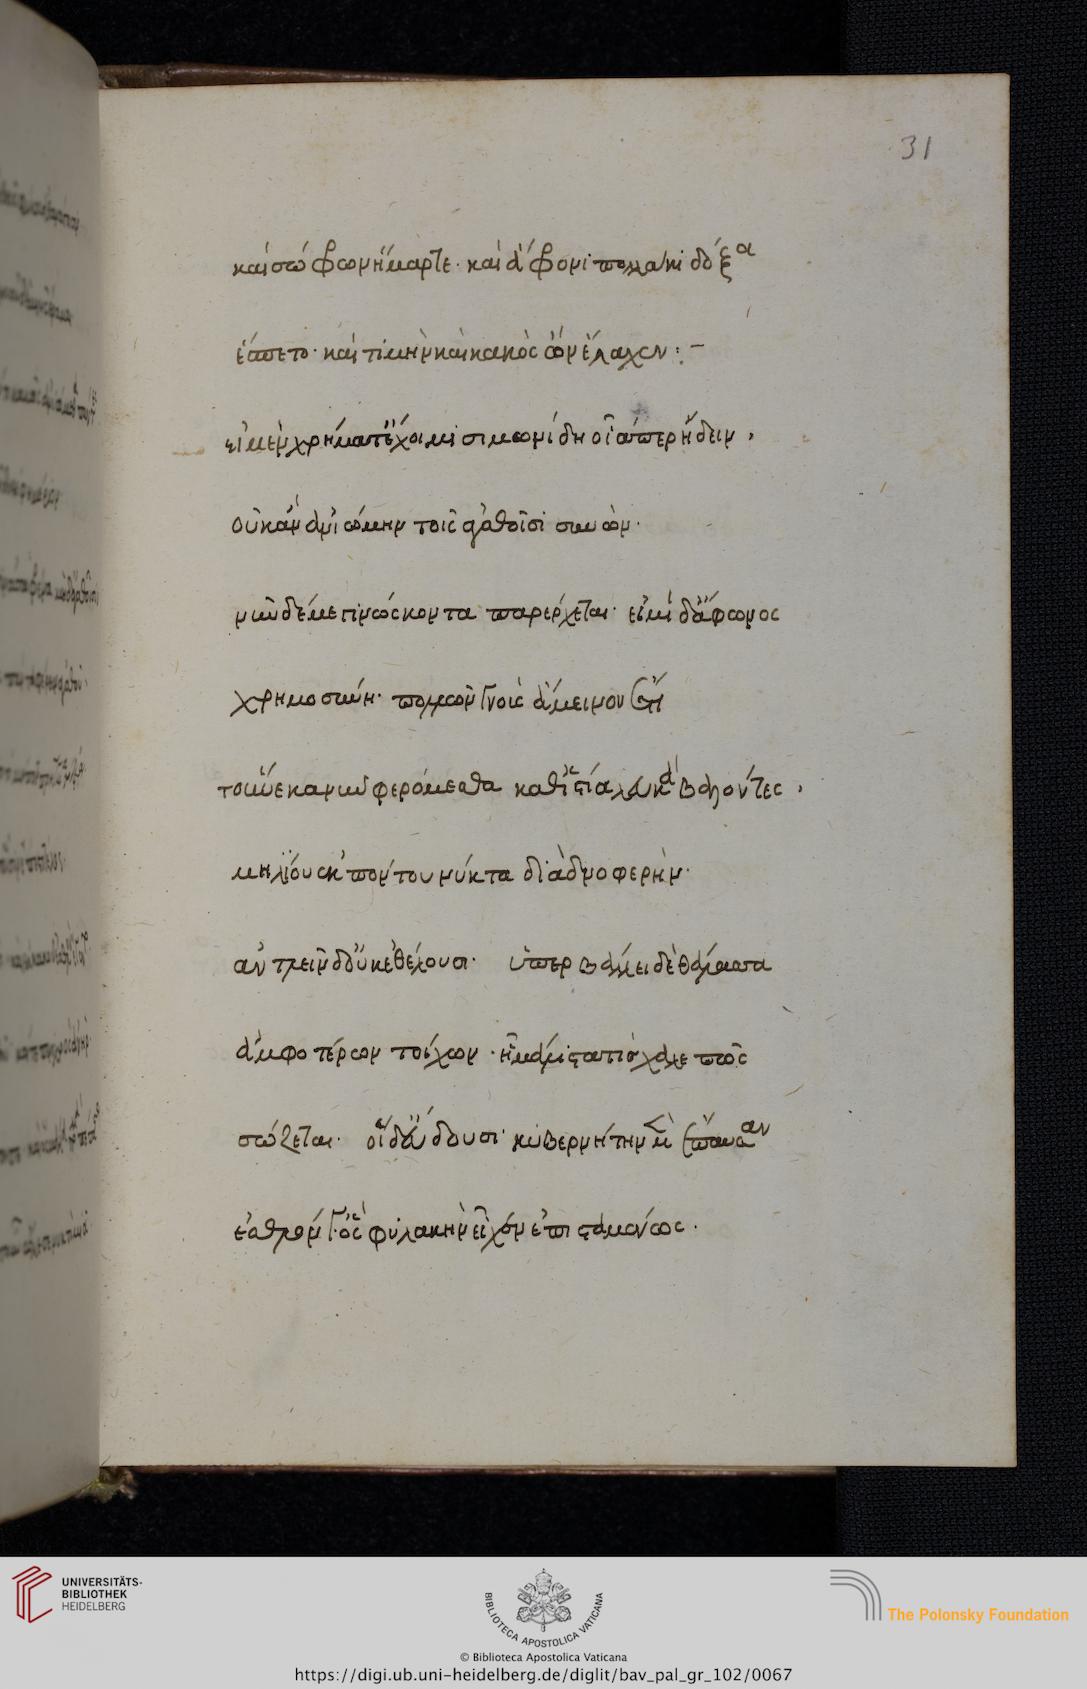 31
καὶ σώφρων ἥμαρτε· καὶ ἄφρονι πολλάκι δόξα
ἕσπετο· καὶ τιμὴν καὶ κακὸς ὢν ἔλαχεν :–
εἰ μὲν χρήματ' ἔχοιμι σιμωνίδη οἷάπερ ἤδειν,
οὐκ ἂν ἀνιώμην τοῖς ἀγαθοῖσι συνών·
νῦν δέ με γινώσκοντα παρέρχεται· εἰμὶ δ' ἄφωνος
χρημοσύνη· πολλῶν γνοὺς ἄμεινον ἔτι
τοὔνεκα νῦν φερόμεσθα καθ' ἱστία λευκὰ βαλόντες,
μηλίου ἐκ πόντου νύκτα διὰ δνοφερήν·
ἀντλεῖν δ' οὐκ ἐθέλουσι· ὑπερβάλλει δὲ θάλασσα
ἀμφοτέρων τοίχων· ἦ μάλα τις χαλεπῶς
σώζεται· οἷ' ἔρδουσι· κυβερνήτην μὲν ἔπαυσαν
ἐσθλόν ὅτις φυλακὴν εἶχεν ἐπισταμένως·
UNIVERSITÄTS-
BIBLIOTHEK
HEIDELBERG
BIBLIOTECA APOSTOLICA VATICANA
The Polonsky Foundation
© Biblioteca Apostolica Vaticana
https://digi.ub.uni-heidelberg.de/diglit/bav_pal_gr_102/0067